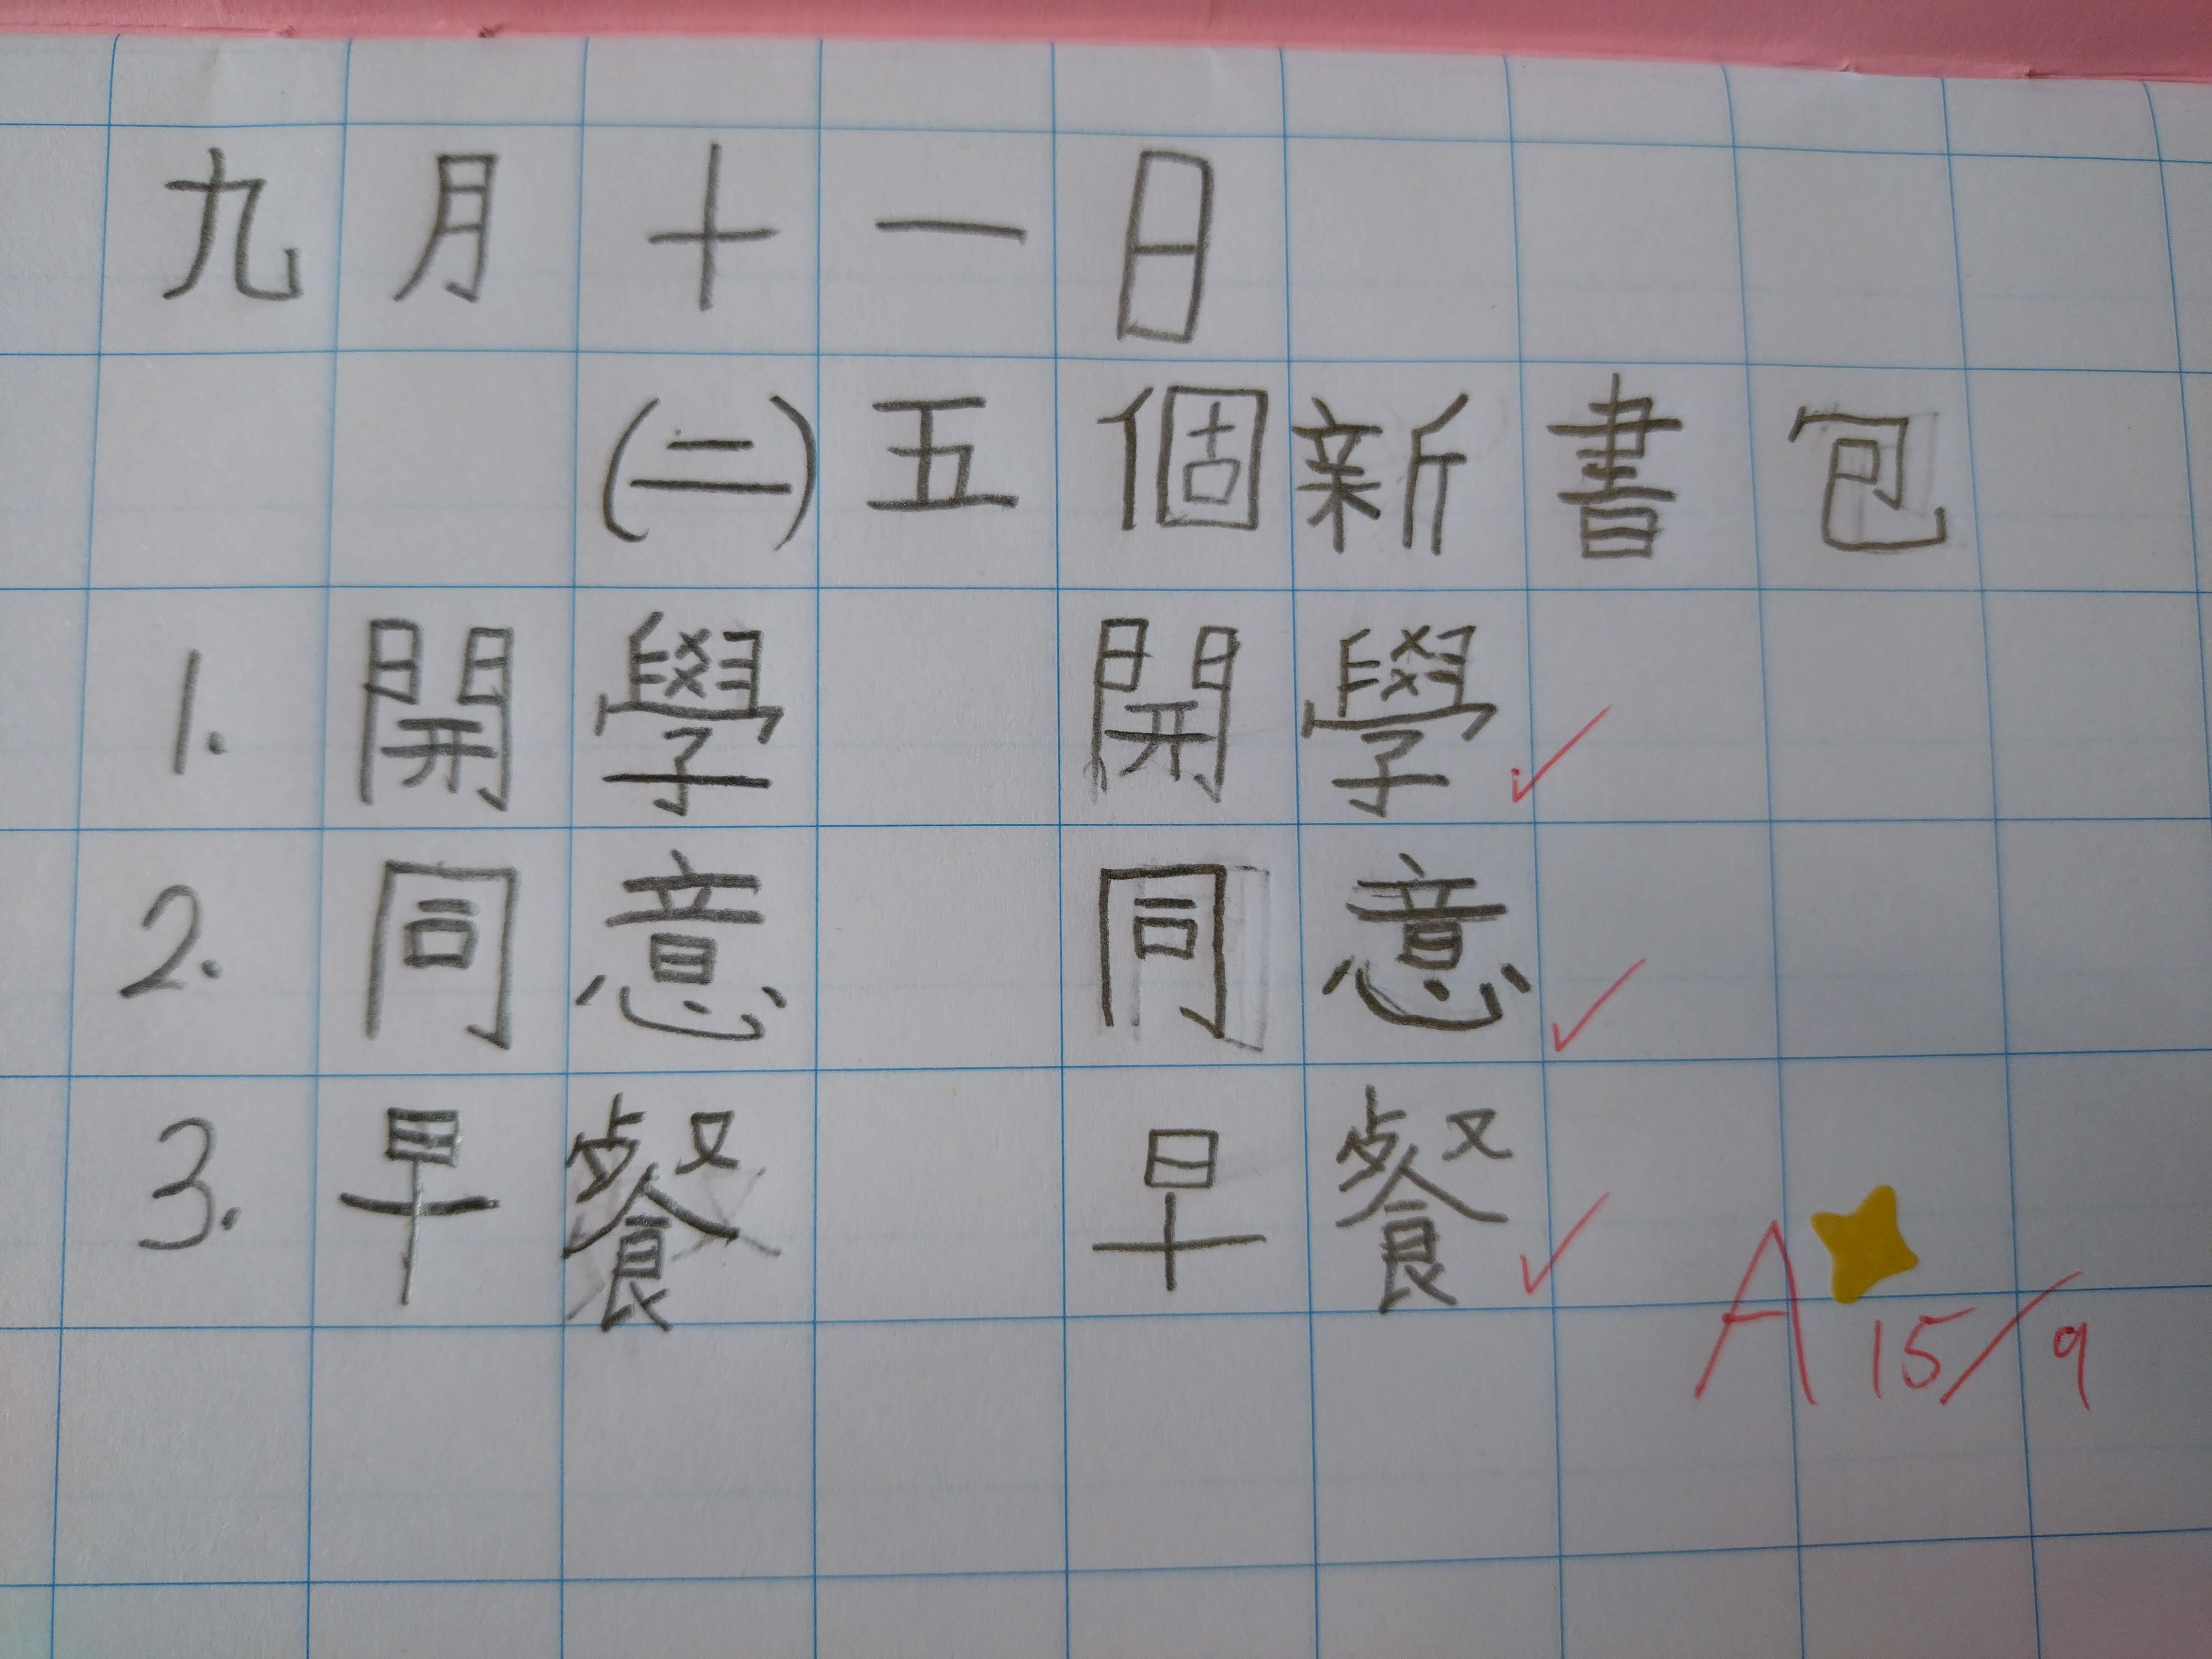 九月十一日
(二)五個新書包
1. 開學 開學
2. 同意 同意
3. 早餐 早餐
A 15/9